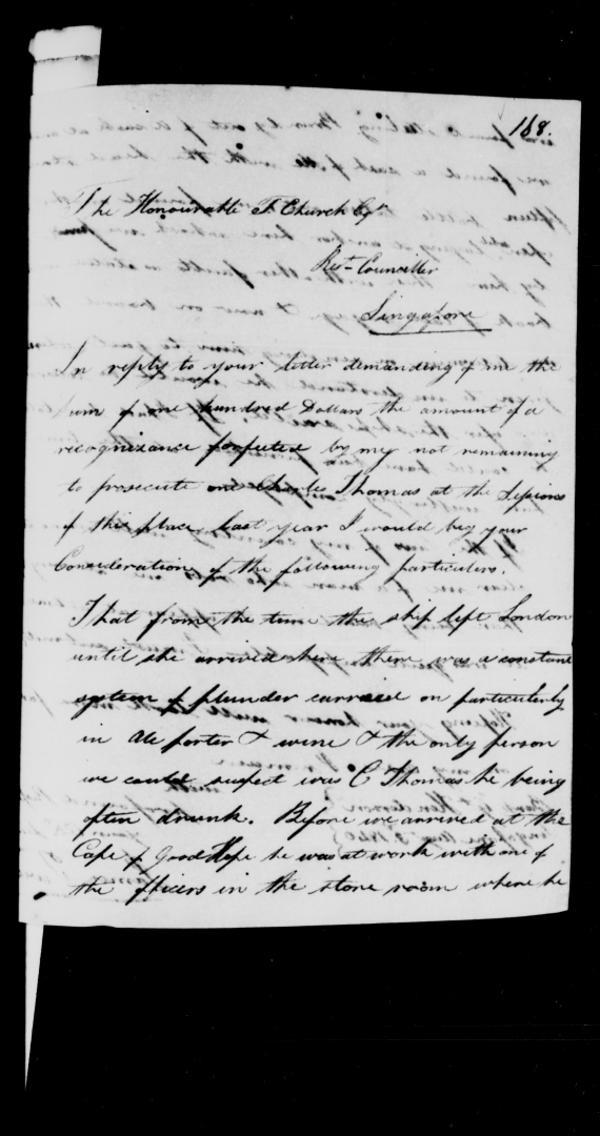 168.
The Honourable T. Church Esqr
Rest. Councillor
Singapore
In reply to your letter demanding of me the
sum of one hundred Dollars the amount of a
recognizance forfeited by my not remaining
to prosecute one Charles Thomas at the Sessions
of this place last year I would beg your
Consideration of the following particulers.
That from the time the ship left London
until she arrived here there was a constant
system of plunder carried on particulerly
in Ale porter & wine & the only person
we could suspect was C Thomas he being
often drunk. Before we arrived at the
Cape of Good Hope he was at work with one of
the officers in the store room where he